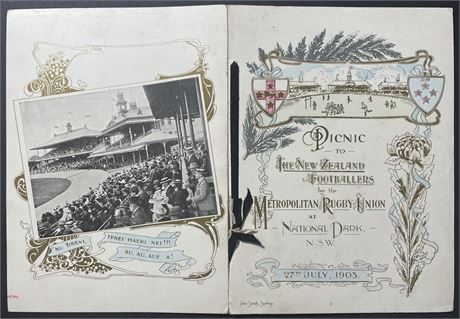 NU TIRENI,
TENEI HAERI NEI!!!
AU, AU, AUE, A!
PICNIC
TO
THE NEW ZEALAND
FOOTBALLERS
by the
METROPOLITAN RUGBY UNION
AT
NATIONAL PARK,
N.S.W
27TH JULY, 1903.
John Sands, Sydney.